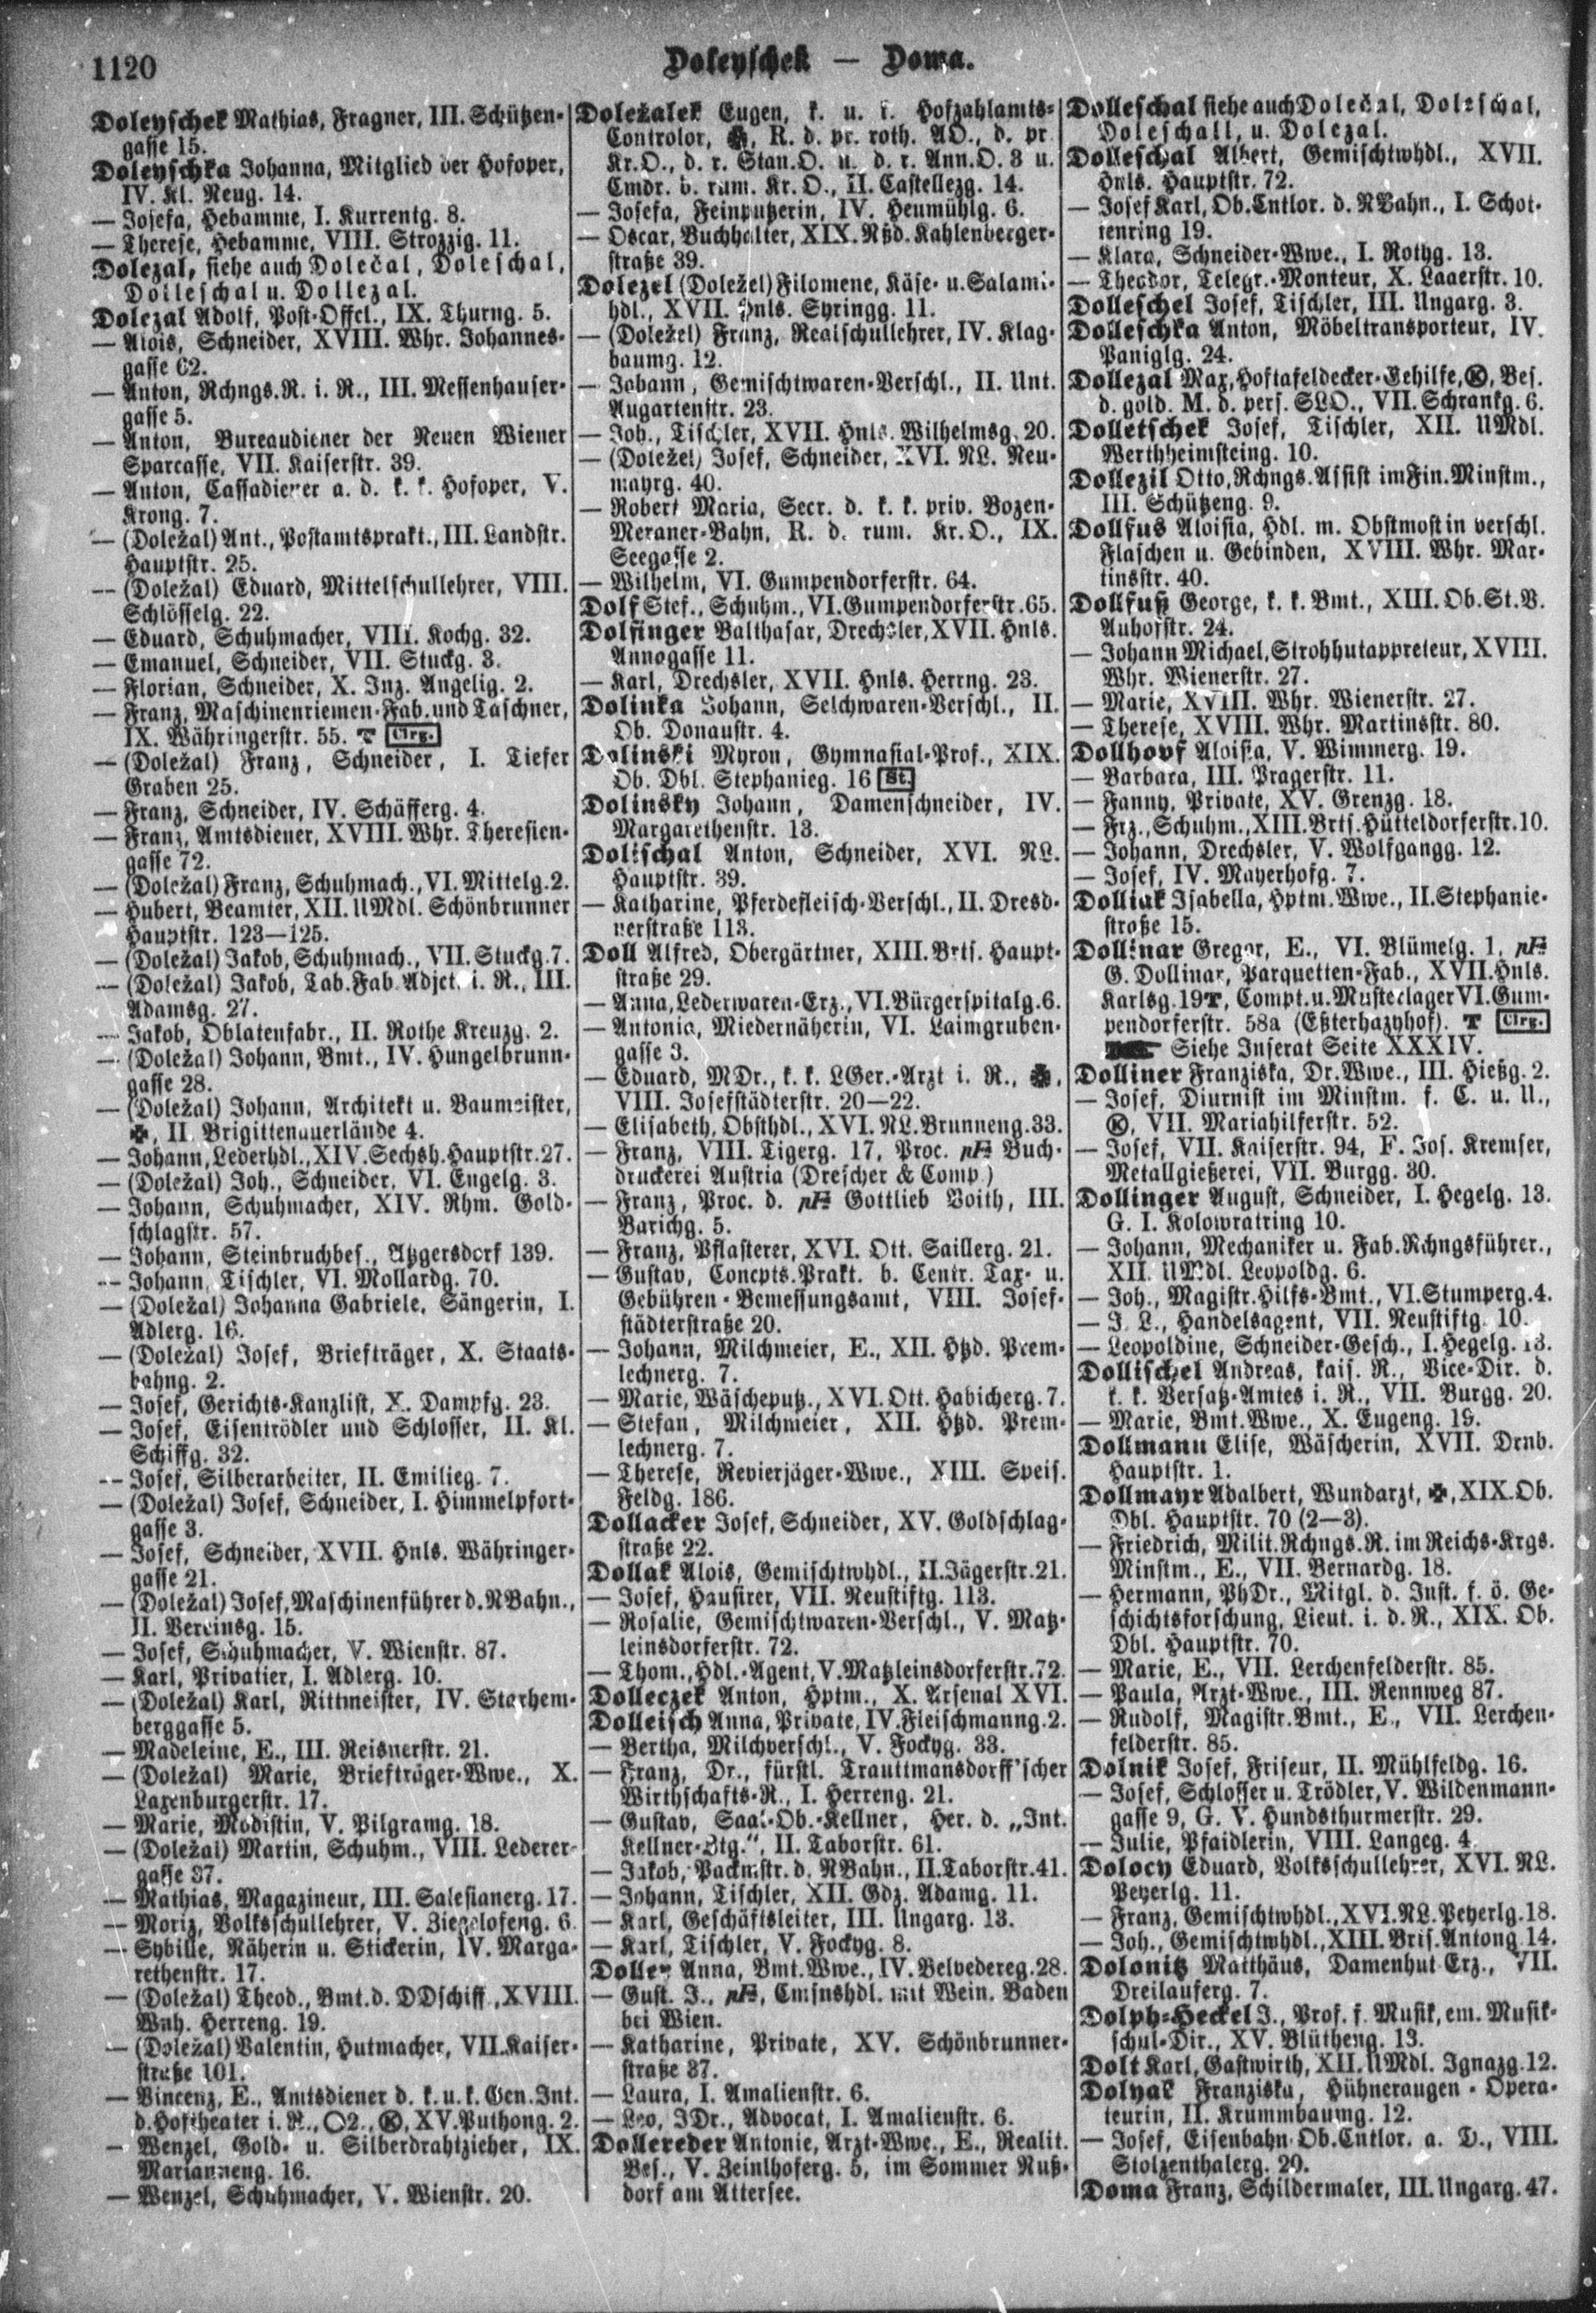 1120
Doleyschek — Doma.
Doleyschek Mathias, Fragner, III. Schützen-
gasse 15.
Doleyschka Johanna, Mitglied der Hofoper,
IV. Kl. Neug. 14.
— Josefa, Hebamme, I. Kurrentg. 8.
— Therese, Hebamme, VIII. Strozzig. 11.
Dolezal, siehe auch Dolečal, Doleschal,
Dolleschal u. Dollezal.
Dolezal Adolf, Post-Offcl., IX. Thurng. 5.
— Alois, Schneider, XVIII. Whr. Johannes-
gasse 62.
— Anton, Rchngs.R. i. R., III. Messenhauser-
gasse 5.
— Anton, Bureaudiener der Neuen Wiener
Sparcasse, VII. Kaiserstr. 39.
— Anton, Cassadiener a. d. k. k. Hofoper, V.
Krong. 7.
— (Doležal) Ant., Postamtsprakt., III. Landstr.
Hauptstr. 25.
— (Doležal) Eduard, Mittelschullehrer, VIII.
Schlösselg. 22.
— Eduard, Schuhmacher, VIII. Kochg. 32.
— Emanuel, Schneider, VII. Stuckg. 3.
— Florian, Schneider, X. Inz. Angelig. 2.
— Franz, Maschinenriemen-Fab. und Taschner,
IX. Währingerstr. 55. T Clrg.
— (Doležal) Franz, Schneider, I. Tiefer
Graben 25.
— Franz, Schneider, IV. Schäfferg. 4.
— Franz, Amtsdiener, XVIII. Whr. Theresien-
gasse 72.
— (Doležal) Franz, Schuhmach., VI. Mittelg. 2.
— Hubert, Beamter, XII. UMdl. Schönbrunner
Hauptstr. 123—125.
— (Doležal) Jakob, Schuhmach., VII. Stuckg. 7.
— (Doležal) Jakob, Tab. Fab. Adjct. i. R., III.
Adamsg. 27.
— Jakob, Oblatenfabr., II. Rothe Kreuzg. 2.
— (Doležal) Johann, Bmt., IV. Hungelbrunn-
gasse 28.
— (Doležal) Johann, Architekt u. Baumeister,
✠, II. Brigittenauerlände 4.
— Johann, Lederhdl., XIV. Sechsh. Hauptstr. 27.
— (Doležal) Joh., Schneider, VI. Engelg. 3.
— Johann, Schuhmacher, XIV. Rhm. Gold-
schlagstr. 57.
— Johann, Steinbruchbes., Atzgersdorf 139.
— Johann, Tischler, VI. Mollardg. 70.
— (Doležal) Johanna Gabriele, Sängerin, I.
Adlerg. 16.
— (Doležal) Josef, Briefträger, X. Staats-
bahng. 2.
— Josef, Gerichts-Kanzlist, X. Dampfg. 23.
— Josef, Eisentrödler und Schlosser, II. Kl.
Schiffg. 32.
— Josef, Silberarbeiter, II. Emilieg. 7.
— (Doležal) Josef, Schneider, I. Himmelpfort-
gasse 3.
— Josef, Schneider, XVII. Hnls. Währinger-
gasse 21.
— (Doležal) Josef, Maschinenführer d. NBahn.,
II. Vereinsg. 15.
— Josef, Schuhmacher, V. Wienstr. 87.
— Karl, Privatier, I. Adlerg. 10.
— (Doležal) Karl, Rittmeister, IV. Starhem-
berggasse 5.
— Madeleine, E., III. Reisnerstr. 21.
— (Doležal) Marie, Briefträger-Wwe., X.
Laxenburgerstr. 17.
— Marie, Modistin, V. Pilgramg. 18.
— (Doležal) Martin, Schuhm., VIII. Lederer-
gasse 37.
— Mathias, Magazineur, III. Salesianerg. 17.
— Moriz, Volksschullehrer, V. Ziegelofeng. 6.
— Sybille, Näherin u. Stickerin, IV. Marga-
rethenstr. 17.
— (Doležal) Theod., Bmt. d. DDschiff., XVIII.
Wnh. Herreng. 19.
— (Doležal) Valentin, Hutmacher, VII. Kaiser-
straße 101.
— Vincenz, E., Amtsdiener d. k. u. k. Gen. Int.
d. Hoftheater i. R., O2., Ⓚ, XV. Puthong. 2.
— Wenzel, Gold- u. Silberdrahtzieher, IX.
Marianneng. 16.
— Wenzel, Schuhmacher, V. Wienstr. 20.
Doležalek Eugen, k. u. k. Hofzahlamts-
Controlor, R. d. pr. roth. AO., d. pr.
Kr.O., d. r. Stan.O. u. d. r. Ann.O. 3 u.
Cmdr. d. rum. Kr.O., II. Castellezg. 14.
— Josefa, Feinputzerin, IV. Heumühlg. 6.
— Oscar, Buchhalter, XIX. Nßd. Kahlenberger-
straße 39.
Dolezel (Doležel) Filomene, Käse- u. Salami-
hdl., XVII. Hnls. Syringg. 11.
— (Doležel) Franz, Realschullehrer, IV. Klag-
baumg. 12.
— Johann, Gemischtwaren-Verschl., II. Unt.
Augartenstr. 23.
— Joh., Tischler, XVII. Hnls. Wilhelmsg. 20.
— (Doležel) Josef, Schneider, XVI. NL. Neu-
mayrg. 40.
— Robert Maria, Secr. d. k. k. priv. Bozen-
Meraner-Bahn, R. d. rum. Kr.O., IX.
Seegasse 2.
— Wilhelm, VI. Gumpendorferstr. 64.
Dolf Stef., Schuhm., VI. Gumpendorferstr. 65.
Dolfinger Balthasar, Drechsler, XVII. Hnls.
Annogasse 11.
— Karl, Drechsler, XVII. Hnls. Herrng. 23.
Dolinka Johann, Selchwaren-Verschl., II.
Ob. Donaustr. 4.
Dolinski Myron, Gymnasial-Prof., XIX.
Ob. Dbl. Stephanieg. 16 St.
Dolinsky Johann, Damenschneider, IV.
Margarethenstr. 13.
Dolischal Anton, Schneider, XVI. NL.
Hauptstr. 39.
— Katharine, Pferdefleisch-Verschl., II. Dresd-
nerstraße 113.
Doll Alfred, Obergärtner, XIII. Brts. Haupt-
straße 29.
— Anna, Lederwaren-Erz., VI. Bürgerspitalg. 6.
— Antonia, Miedernäherin, VI. Laimgruben-
gasse 3.
— Eduard, MDr., k. k. LGer.-Arzt i. R., ✠,
VIII. Josefstädterstr. 20—22.
— Elisabeth, Obsthdl., XVI. NL. Brunneng. 33.
— Franz, VIII. Tigerg. 17, Proc. pFa Buch-
druckerei Austria (Drescher & Comp.)
— Franz, Proc. d. pFa Gottlieb Voith, III.
Barichg. 5.
— Franz, Pflasterer, XVI. Ott. Saillerg. 21.
— Gustav, Concpts. Prakt. b. Centr. Tax- u.
Gebühren-Bemessungsamt, VIII. Josef-
städterstraße 20.
— Johann, Milchmeier, E., XII. Htzd. Prem-
lechnerg. 7.
— Marie, Wäscheputz., XVI. Ott. Habicherg. 7.
— Stefan, Milchmeier, XII. Htzd. Prem-
lechnerg. 7.
— Therese, Revierjäger-Wwe., XIII. Speis.
Feldg. 186.
Dollacker Josef, Schneider, XV. Goldschlag-
straße 22.
Dollak Alois, Gemischtwhdl., II. Jägerstr. 21.
— Josef, Hausirer, VII. Neustiftg. 113.
— Rosalie, Gemischtwaren-Verschl., V. Matz-
leinsdorferstr. 72.
— Thom., Hdl.-Agent, V. Matzleinsdorferstr. 72.
Dolleczek Anton, Hptm., X. Arsenal XVI.
Dolleisch Anna, Private, IV. Fleischmanng. 2.
— Bertha, Milchverschl., V. Fockyg. 33.
— Franz, Dr., fürstl. Trauttmansdorff'scher
Wirthschafts-R., I. Herreng. 21.
— Gustav, Saal-Ob.-Kellner, Her. d. „Int.
Kellner-Ztg.“, II. Taborstr. 61.
— Jakob, Packmstr. d. NBahn., II. Taborstr. 41.
— Johann, Tischler, XII. Gdz. Adamg. 11.
— Karl, Geschäftsleiter, III. Ungarg. 13.
— Karl, Tischler, V. Fockyg. 8.
Doller Anna, Bmt. Wwe., IV. Belvedereg. 28.
— Gust. J., pFa, Cmsnshdl. mit Wein. Baden
bei Wien.
— Katharine, Private, XV. Schönbrunner-
straße 37.
— Laura, I. Amalienstr. 6.
— Leo, JDr., Advocat, I. Amalienstr. 6.
Dollereder Antonie, Arzt-Wwe., E., Realit.
Bes., V. Zeinlhoferg. 5, im Sommer Nuß-
dorf am Attersee.
Dolleschal siehe auch Dolečal, Doleschal,
Doleschall, u. Dolezal.
Dolleschal Albert, Gemischtwhdl., XVII.
Hnls. Hauptstr. 72.
— Josef Karl, Ob. Cntlor. d. NBahn., I. Schot-
tenring 19.
— Klara, Schneider-Wwe., I. Rothg. 13.
— Theodor, Telegr.-Monteur, X. Laaerstr. 10.
Dolleschel Josef, Tischler, III. Ungarg. 3.
Dolleschka Anton, Möbeltransporteur, IV.
Paniglg. 24.
Dollezal Max, Hoftafeldecker-Gehilfe, Ⓚ, Bes.
d. gold. M. d. pers. SLO., VII. Schrankg. 6.
Dolletschek Josef, Tischler, XII. UMdl.
Werthheimsteing. 10.
Dollezil Otto, Rchngs. Assist im Fin. Minstm.,
III. Schützeng. 9.
Dollfus Aloisia, Hdl. m. Obstmost in verschl.
Flaschen u. Gebinden, XVIII. Whr. Mar-
tinsstr. 40.
Dollfuß George, k. k. Bmt., XIII. Ob. St. V.
Auhofstr. 24.
— Johann Michael, Strohhutappreteur, XVIII.
Whr. Wienerstr. 27.
— Marie, XVIII. Whr. Wienerstr. 27.
— Therese, XVIII. Whr. Martinsstr. 80.
Dollhopf Aloisia, V. Wimmerg. 19.
— Barbara, III. Pragerstr. 11.
— Fanny, Private, XV. Grenzg. 18.
— Frz., Schuhm., XIII. Brts. Hütteldorferstr. 10.
— Johann, Drechsler, V. Wolfgangg. 12.
— Josef, IV. Mayerhofg. 7.
Dolliak Isabella, Hptm. Wwe., II. Stephanie-
straße 15.
Dollinar Gregor, E., VI. Blümelg. 1, pFa
G. Dollinar, Parquetten-Fab., XVII. Hnls.
Karlsg. 19 T, Compt. u. Musterlager VI. Gum-
pendorferstr. 58a (Eßterhazyhof). T Clrg.
Siehe Inserat Seite XXXIV.
Dolliner Franziska, Dr. Wwe., III. Hießg. 2.
— Josef, Diurnist im Minstm. f. C. u. U.,
Ⓚ, VII. Mariahilferstr. 52.
— Josef, VII. Kaiserstr. 94, F. Jos. Kremser,
Metallgießerei, VII. Burgg. 30.
Dollinger August, Schneider, I. Hegelg. 13.
G. I. Kolowratring 10.
— Johann, Mechaniker u. Fab. Rchngsführer.,
XII. UMdl. Leopoldg. 6.
— Joh., Magistr. Hilfs-Bmt., VI. Stumperg. 4.
— J. L., Handelsagent, VII. Neustiftg. 10.
— Leopoldine, Schneider-Gesch., I. Hegelg. 13.
Dollischel Andreas, kais. R., Vice-Dir. d.
k. k. Versatz-Amtes i. R., VII. Burgg. 20.
— Marie, Bmt. Wwe., X. Eugeng. 19.
Dollmann Elise, Wäscherin, XVII. Drnb.
Hauptstr. 1.
Dollmayr Adalbert, Wundarzt, ✠, XIX. Ob.
Dbl. Hauptstr. 70 (2—3).
— Friedrich, Milit. Rchngs. R. im Reichs-Krgs.
Minstm., E., VII. Bernardg. 18.
— Hermann, PhDr., Mitgl. d. Inst. f. ö. Ge-
schichtsforschung, Lieut. i. d. R., XIX. Ob.
Dbl. Hauptstr. 70.
— Marie, E., VII. Lerchenfelderstr. 85.
— Paula, Arzt-Wwe., III. Rennweg 87.
— Rudolf, Magistr. Bmt., E., VII. Lerchen-
felderstr. 85.
Dolnik Josef, Friseur, II. Mühlfeldg. 16.
— Josef, Schlosser u. Trödler, V. Wildenmann-
gasse 9, G. V. Hundsthurmerstr. 29.
— Julie, Pfaidlerin, VIII. Langeg. 4.
Dolocy Eduard, Volksschullehrer, XVI. NL.
Peyerlg. 11.
— Franz, Gemischtwhdl., XVI. NL. Peyerlg. 18.
— Joh., Gemischtwhdl., XIII. Brts. Antong. 14.
Dolonitz Matthäus, Damenhut Erz., VII.
Dreilauferg. 7.
Dolph-Heckel J., Prof. f. Musik, em. Musik-
schul-Dir., XV. Blütheng. 13.
Dolt Karl, Gastwirth, XII. UMdl. Ignazg. 12.
Dolyak Franziska, Hühneraugen-Opera-
teurin, II. Krummbaumg. 12.
— Josef, Eisenbahn Ob. Cntlor. a. D., VIII.
Stolzenthalerg. 20.
Doma Franz, Schildermaler, III. Ungarg. 47.